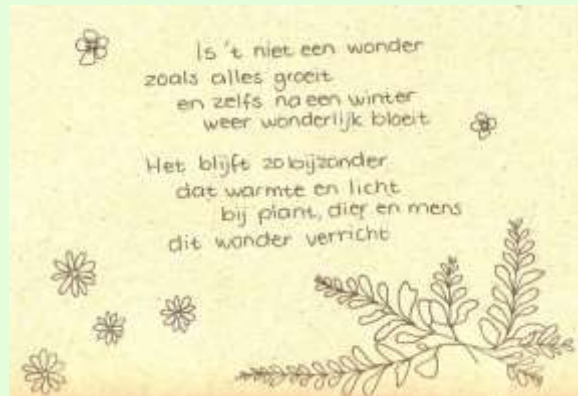 Is 't niet een wonder
zoals alles groeit
en zelfs na een winter
weer wonderlijk bloeit
Het blijft zo bijzonder
dat warmte en licht
bij plant, dier en mens
dit wonder verricht